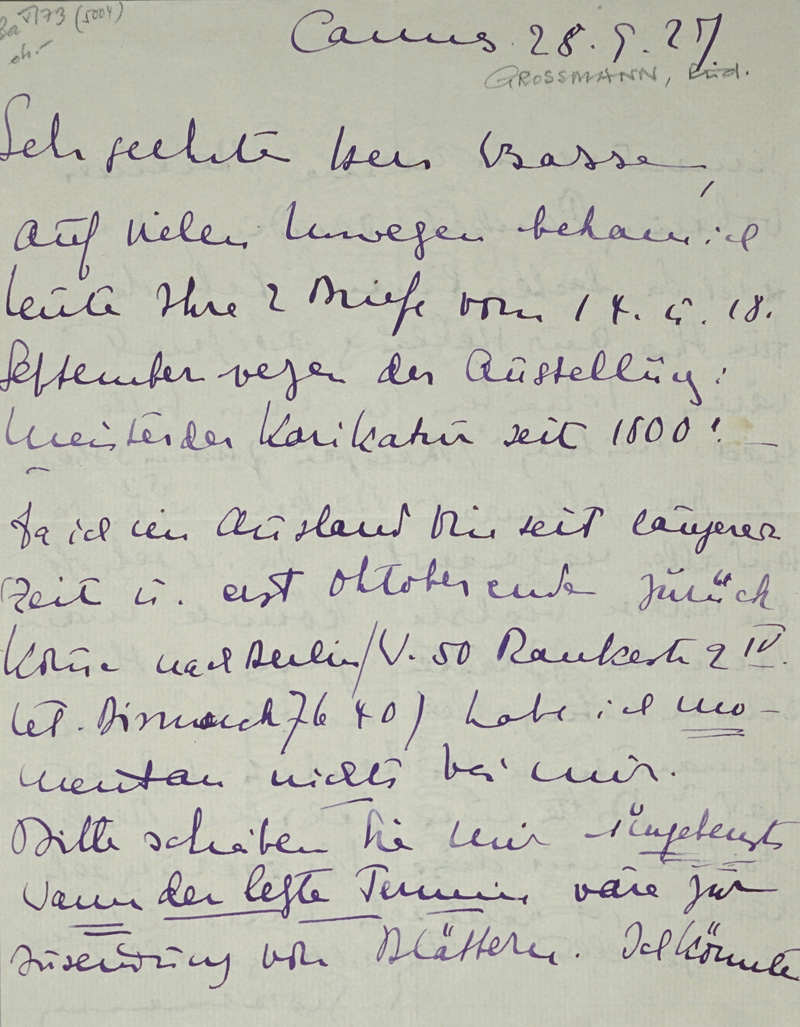 Ba VI 73 (5004)
oh.-
Cannes 28. 9. 27
GROSSMANN, Rud.
Sehr geehrter Herr Basse,
auf vielen Umwegen bekam ich
heute Ihre 2 Briefe vom 14. u. 18.
September wegen der Ausstellung:
Meister der Karikatur seit 1800! –
Da ich im Ausland bin seit längerer
Zeit u. erst Oktoberende zurück
komme nach Berlin/W. 50 Rankestr 9 IV.
tel. Bismarck 76 40) habe ich mo-
mentan nichts bei mir.
Bitte schreiben Sie mir umgehendst
wann der letzte Termin wäre zur
Zusendung von Blättern. Ich könnte